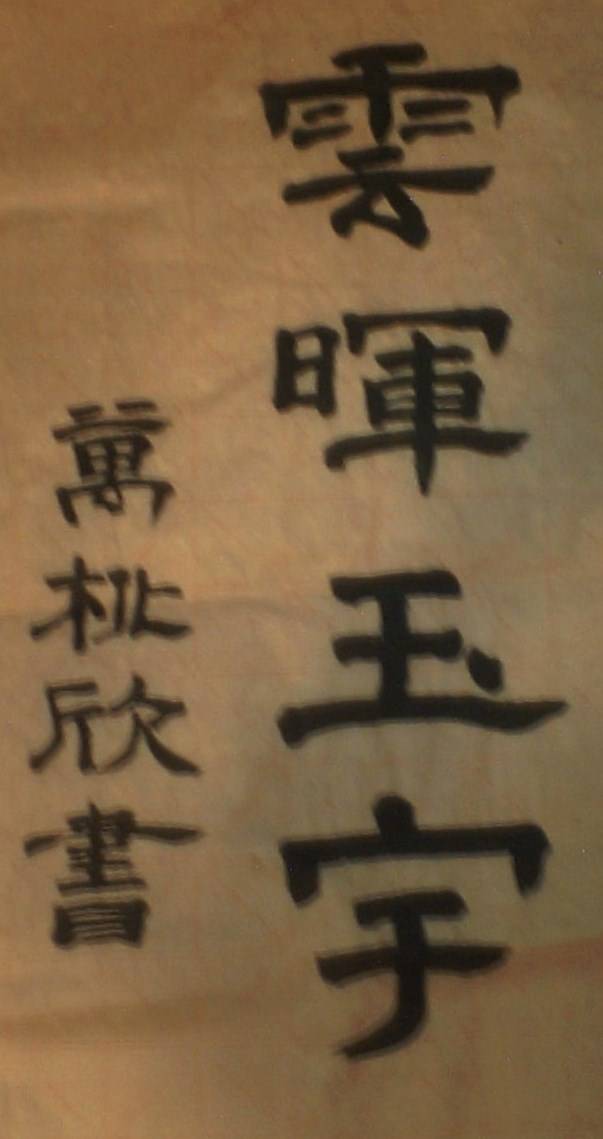 雲暉玉宇
萬桃欣書